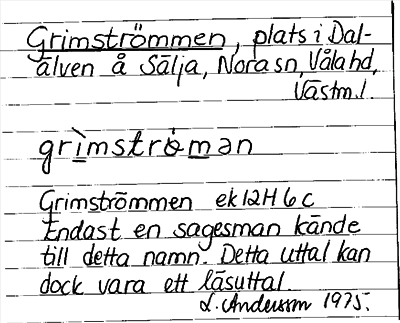 Grimströmmen, plats i Dal-
älven å Sälja, Nora sn, Våla hd,
Västm. l.
grìmströ̀man
Grimströmmen ek 12H 6c
Endast en sagesman kände
till detta namn. Detta uttal kan
dock vara ett läsuttal.
L. Andersson 1975.